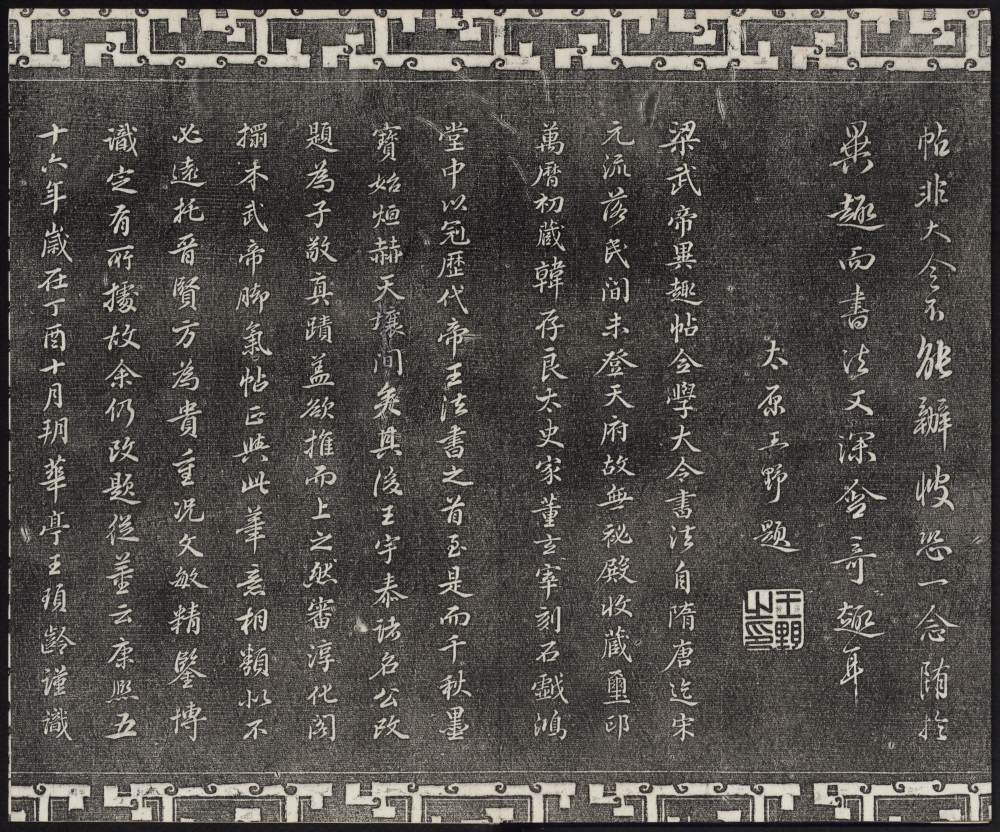 帖非大令不能辦恐一念於
異趣而書法又深會奇趣耳
太原王野題
王野之印
梁武帝異趣帖全學大令書法自隋唐迄宋
元流落民間未登天府故無祕殿收藏璽印
萬曆初藏韓存良太史家董玄宰刻石戲鴻
堂中以冠歷代帝王法書之首至是而千秋墨
寶始烜赫天壤間矣其後王宇泰諸名公改
題為子敬真蹟蓋欲推而上之然審淳化閣
搨本武帝腳氣帖正與此筆意相類似不
必遠托晉賢方為貴重況文敏精鑒博
識定有所據故余仍改題從董云康熙五
十六年歲在丁酉十月朔華亭王頊齡謹識